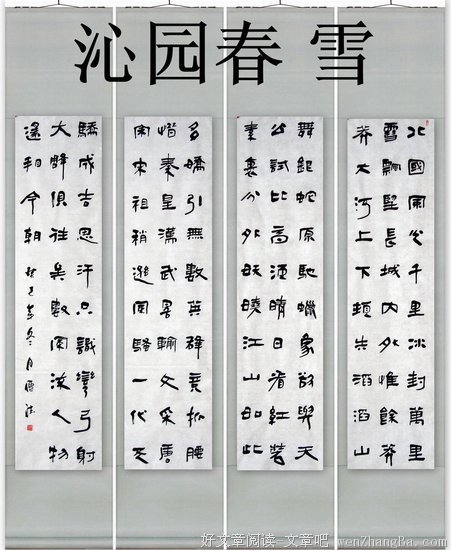 沁园春 雪
北國風光千里冰封萬里
雪飄望長城內外惟餘莽
莽大河上下頓失滔滔山
舞銀蛇原馳蠟象欲與天
公試比高須晴日看紅裝
素裹分外妖嬈江山如此
多嬌引無數英雄競折腰
惜秦皇漢武畧輸文采唐
宗宋祖稍遜風騷一代天
驕成吉思汗只識彎弓射
大雕俱往矣數風流人物
還相今朝
好文章阅读-文章吧 wenZhangBa.com